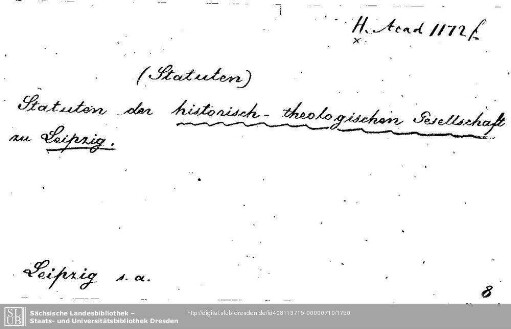 H. Acad 1172 f
x.
(Statuten)
Statuten der historisch-theologischen Gesellschaft
zu Leipzig.
Leipzig s. a.
8
SLUB
Sächsische Landesbibliothek –
Staats- und Universitätsbibliothek Dresden